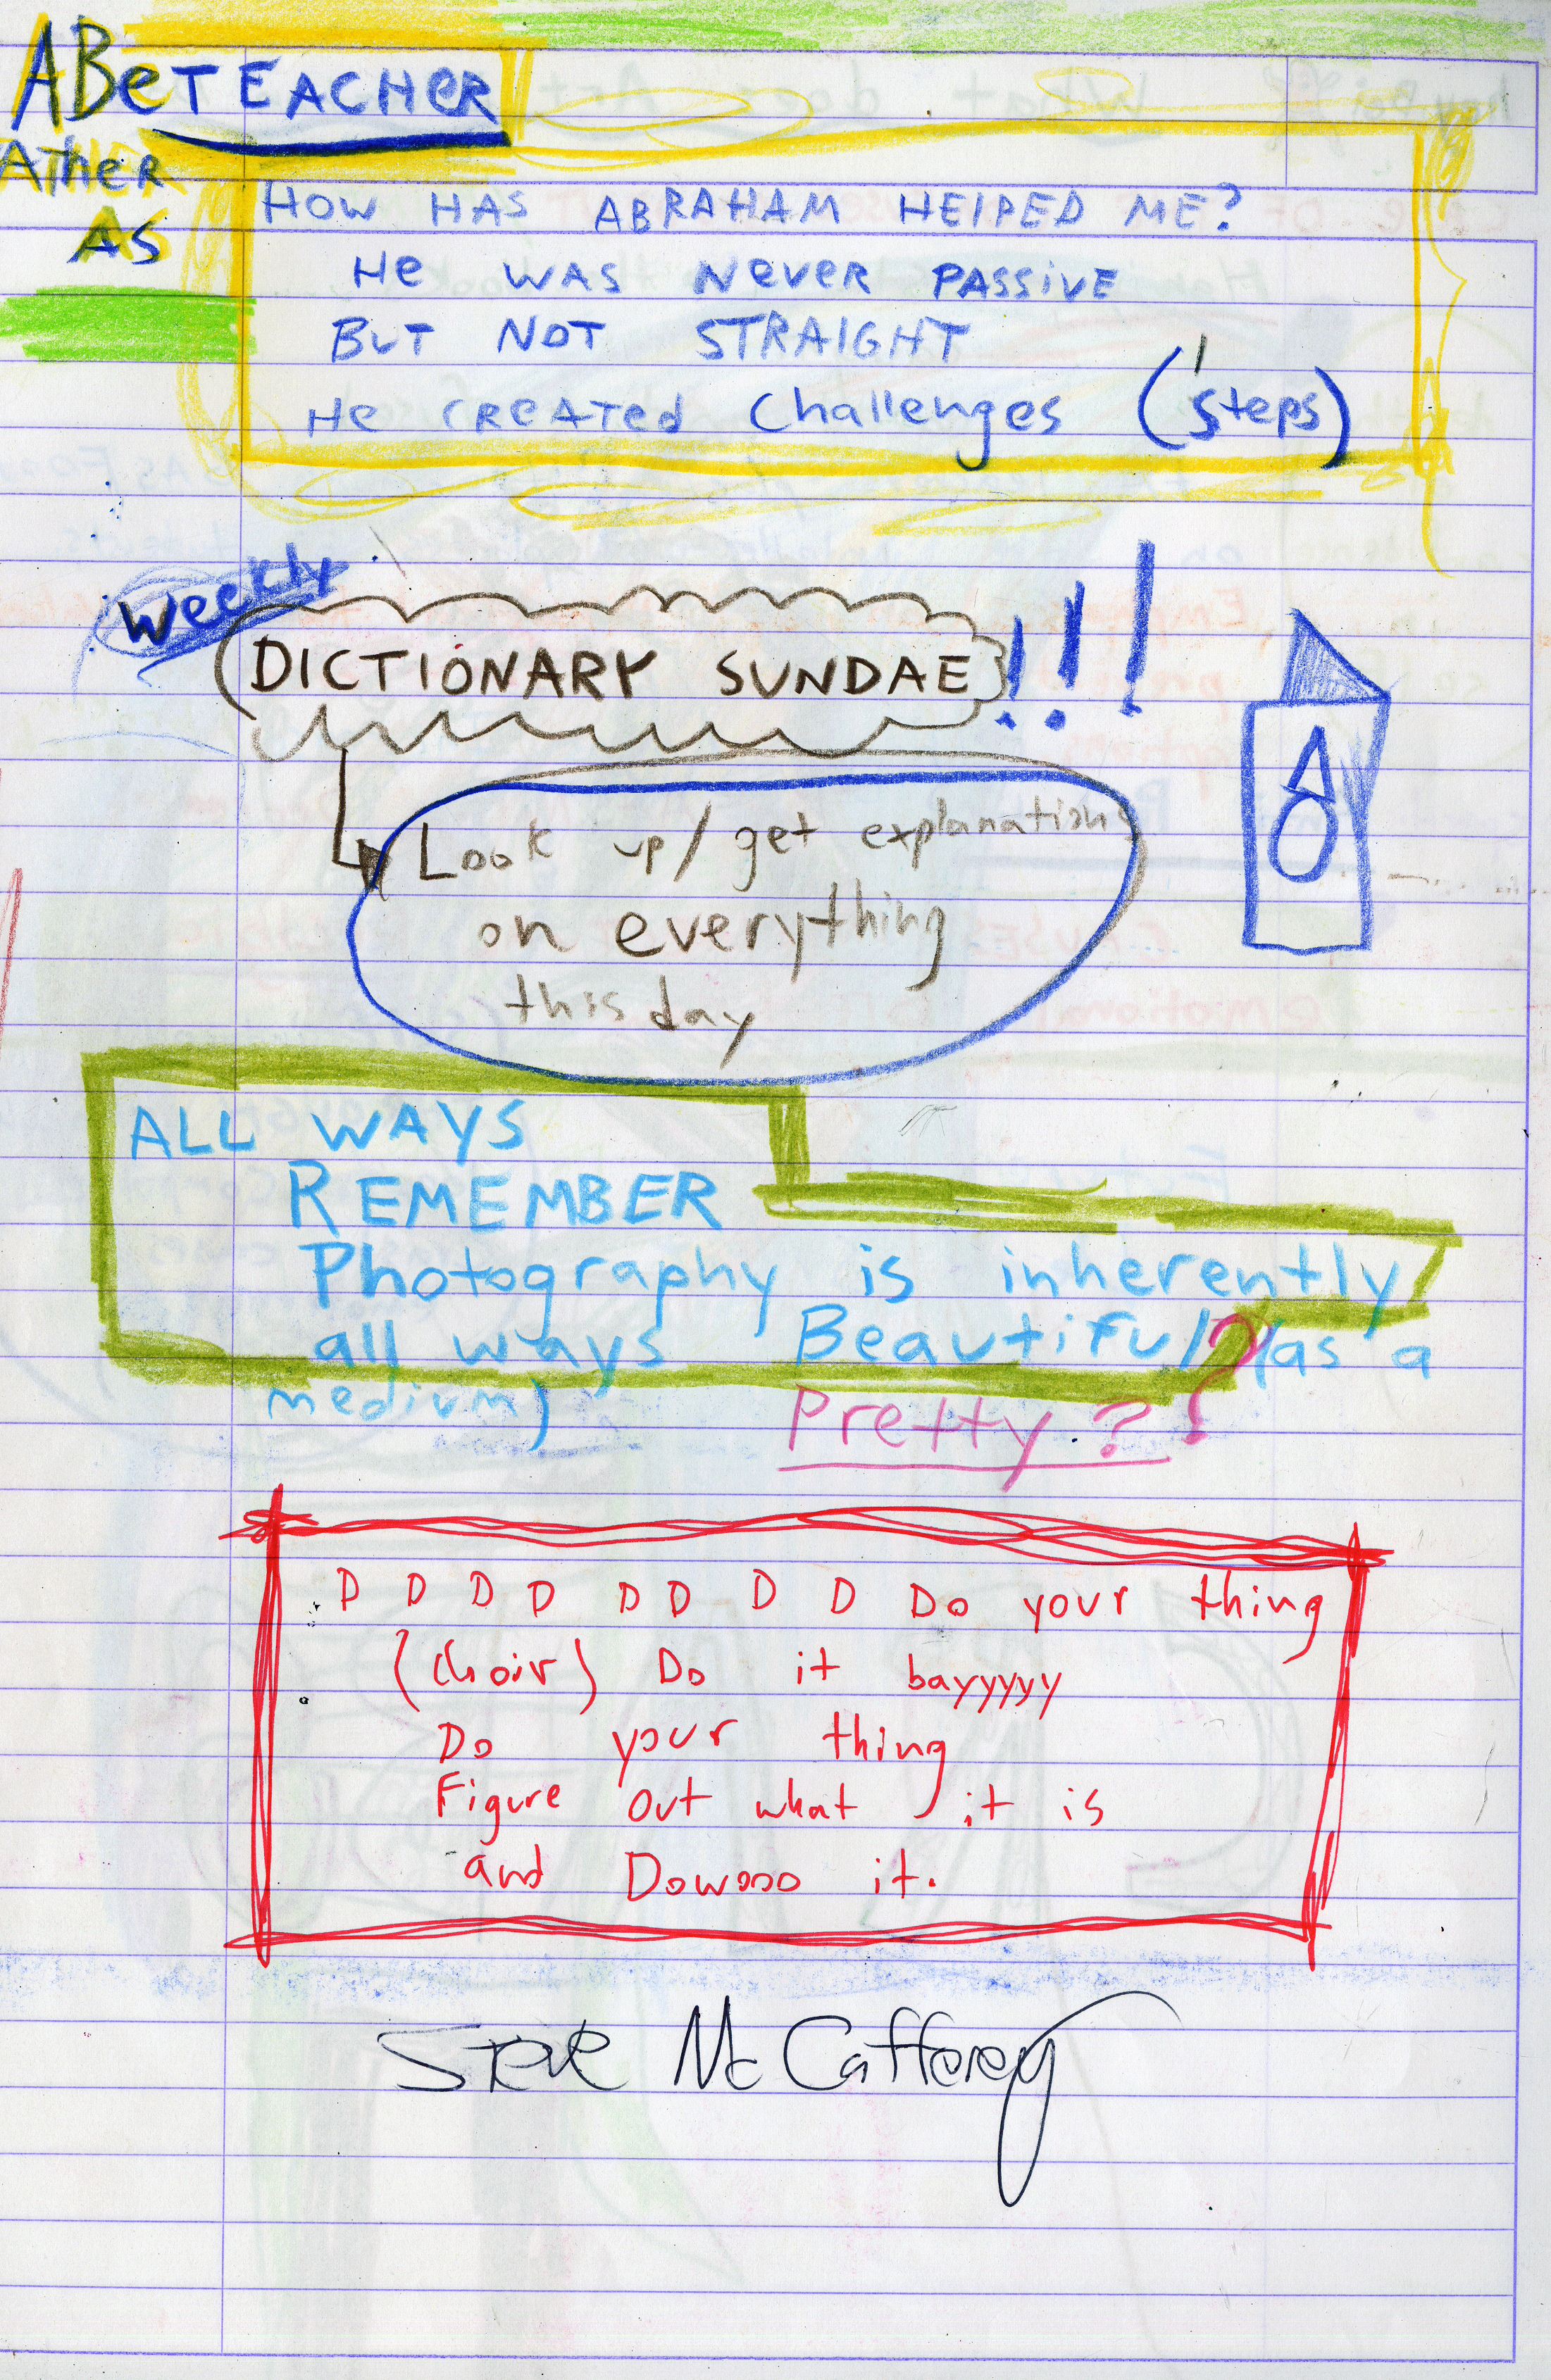 ABe TEACHER
ATHER
AS
HOW HAS ABRAHAM HElPED ME?
He WAS Never PASSIVE
BUT NOT STRAIGHT
He CREATED Challenges (steps)
Weekly
DICTIONARY SUNDAE !!!
Look up/get explanations
on everything
this day
ALL WAYS
REMEMBER
Photography is inherently
all ways Beautiful? (as a
medium) Pretty??
D D D D D D D D Do your thing
(choir) Do it bayyyyy
Do your thing
Figure out what it is
and Dowooo it.
Steve McCafferey